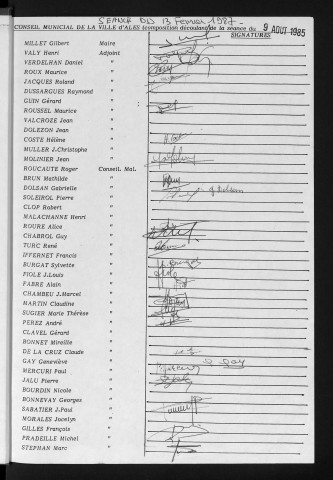 SEANCE DU 13 Février 1987 -
CONSEIL MUNICIAL DE LA VILLE D'ALES (composition découlant de la séance du 9 AOUT 1985
SIGNATURES
MILLET Gilbert Maire
VALY Henri Adjoint
VERDELHAN Daniel "
ROUX Maurice "
JACQUES Roland "
DUSSARGUES Raymond "
GUIN Gérard "
ROUSSEL Maurice "
VALCROZE Jean "
DOLEZON Jean "
COSTE Hélène "
MULLER J.Christophe "
MOLINIER Jean "
ROUCAUTE Roger Conseil. Mal.
BRUN Mathilde "
DOLSAN Gabrielle "
SOLEIROL Pierre "
CLOP Robert "
MALACHANNE Henri "
ROURE Alice "
CHABROL Guy "
TURC René "
IFFERNET Francis "
BURGAT Sylvette "
FIOLE J.Louis "
FABRE Alain "
CHAMBEU J.Marcel "
MARTIN Claudine "
SUGIER Marie Thérèse "
PEREZ André "
CLAVEL Gérard "
BONNET Mireille "
DE LA CRUZ Claude "
GAY Geneviève "
MERCURI Paul "
JALU Pierre "
BOURDIN Nicole "
BONNEVAY Georges "
SABATIER J.Paul "
MORALES Jocelyn "
GILLES François "
PRADEILLE Michel "
STEPHAN Marc "